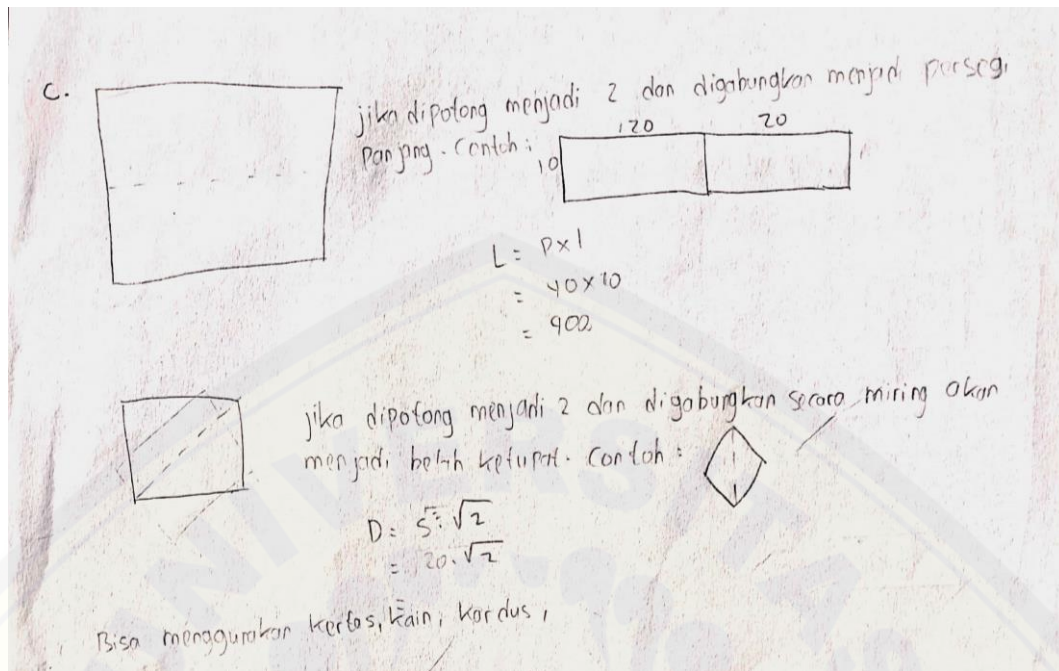 C.
jika dipotong menjadi 2 dan digabungkan menjadi persegi
panjang. Contoh:
20 20
10
L = P x l
= 40 x 10
= 400
jika dipotong menjadi 2 dan digabungkan secara miring akan
menjadi belah ketupat. Contoh:
D = S √2
= 20.√2
Bisa menggunakan kertas, kain, kardus,
UNIVERSITA